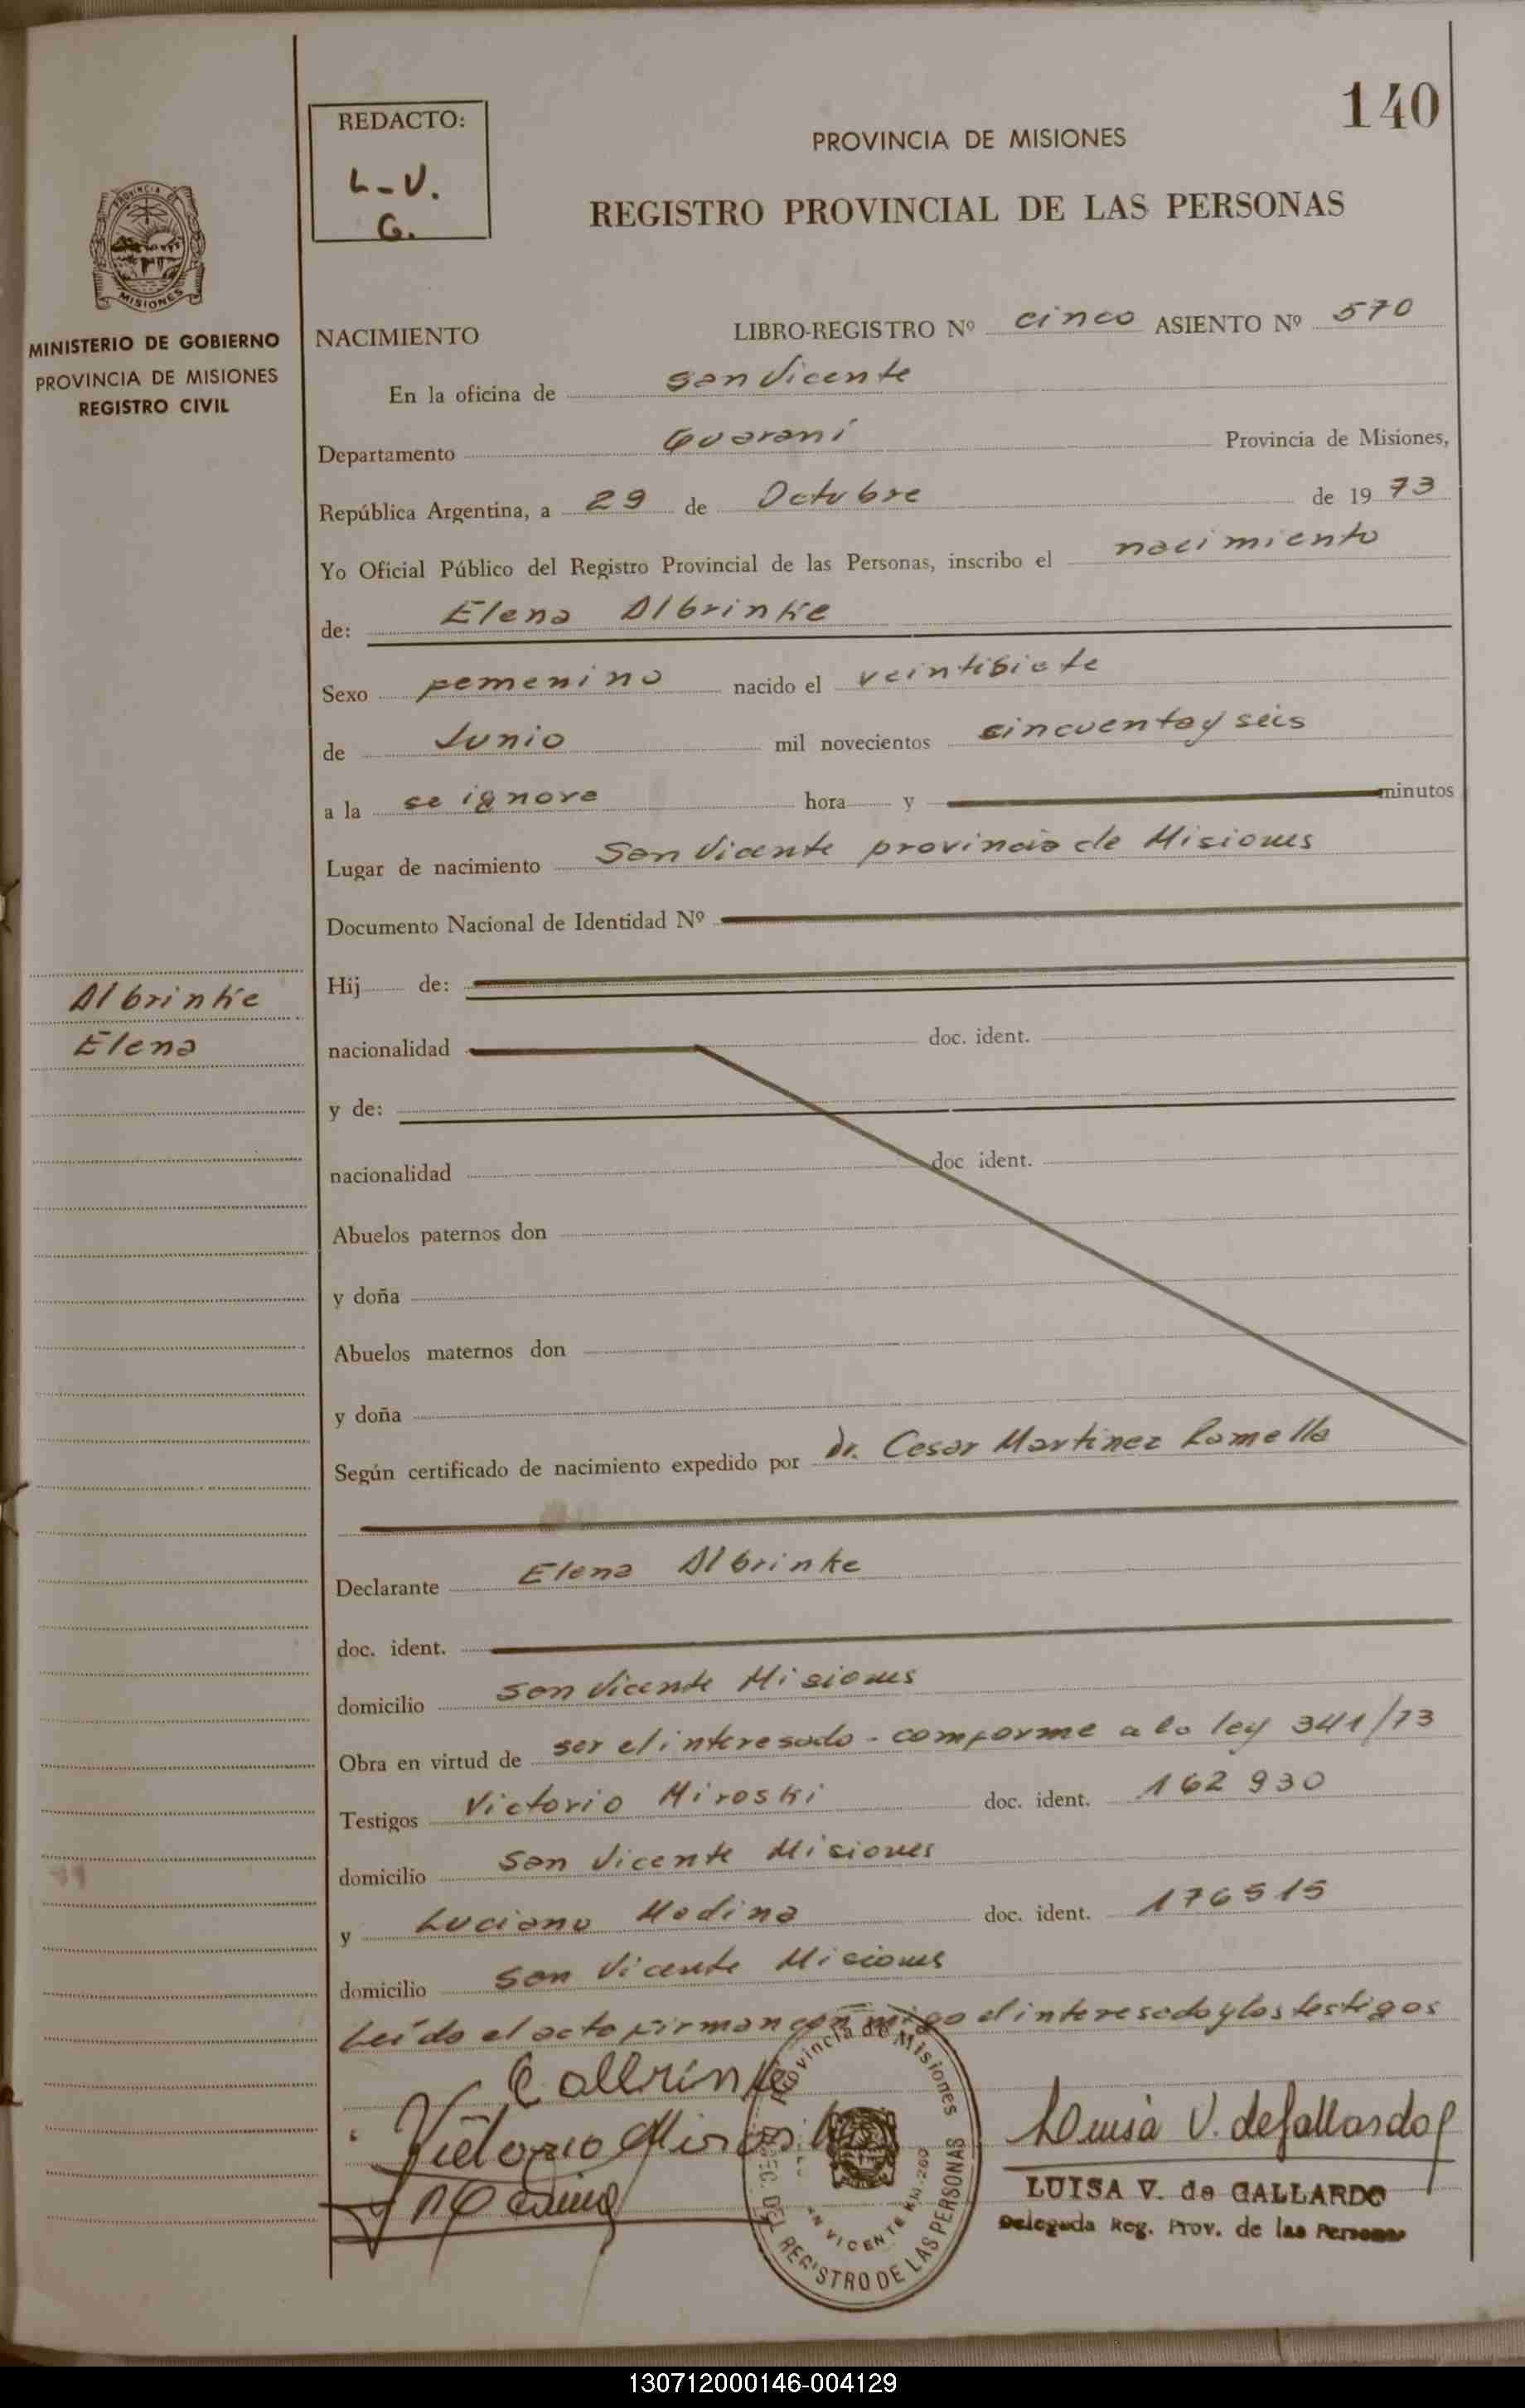 140
REDACTO:
L-V.
G.
PROVINCIA DE MISIONES
REGISTRO PROVINCIAL DE LAS PERSONAS
MISIONES
MINISTERIO DE GOBIERNO
PROVINCIA DE MISIONES
REGISTRO CIVIL
NACIMIENTO LIBRO-REGISTRO Nº cinco ASIENTO Nº 570
En la oficina de San Vicente
Departamento Guaraní Provincia de Misiones,
República Argentina, a 29 de Octubre de 19 73
Yo Oficial Público del Registro Provincial de las Personas, inscribo el nacimiento
de: Elena Albrinke
Sexo femenino nacido el veintisiete
de Junio mil novecientos cincuenta y seis
a la se ignora hora y minutos
Lugar de nacimiento San Vicente provincia de Misiones
Documento Nacional de Identidad Nº
Hij de:
Albrinke
Elena
nacionalidad doc. ident.
y de:
nacionalidad doc ident.
Abuelos paternos don
y doña
Abuelos maternos don
y doña
Según certificado de nacimiento expedido por Dr. Cesar Martinez Ramella
Declarante Elena Albrinke
doc. ident.
domicilio San Vicente Misiones
Obra en virtud de ser el interesado - comforme a la ley 341/73
Testigos Victorio Miroski doc. ident. 162 930
domicilio San Vicente Misiones
y Luciano Medina doc. ident. 176515
domicilio San Vicente Misiones
Leído el acta firman con migo el interesado y los testigos
Victorio Miroski
Luisa V. de Gallardo
LUISA V. de GALLARDO
Delegada Reg. Prov. de las Personas
Provincia de Misiones
DEL REGISTRO DE LAS PERSONAS
130712000146-004129